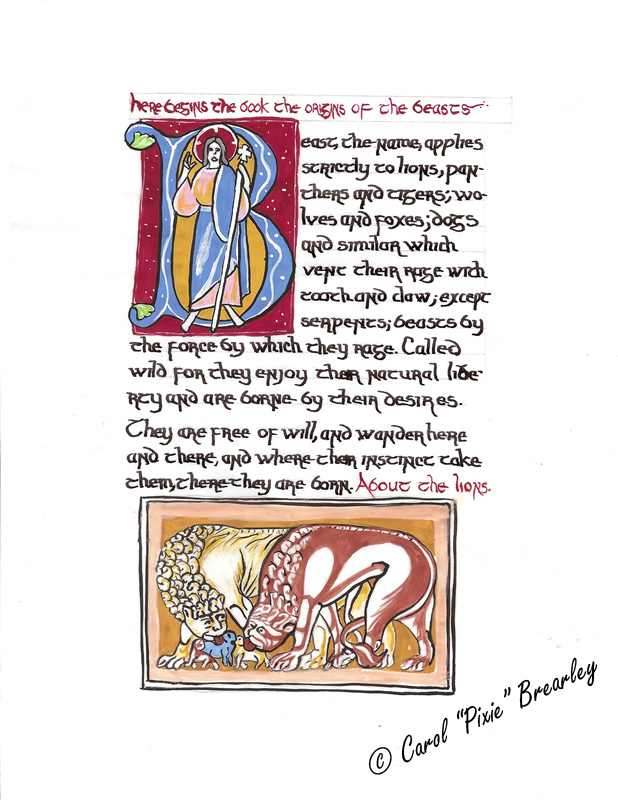 here begins the book the origins of the beasts
Beast, the name, applies
strictly to lions, pan-
thers and tigers; wo-
lves and foxes; dogs
and similar which
vent their rage with
tooth and claw; except
serpents; beasts by
the force by which they rage. Called
wild for they enjoy ther natural libe-
rty and are borne by their desires.
They are free of will, and wander here
and there, and where ther instinct take
them, there they are born. About the lions.
© Carol "Pixie" Brearley